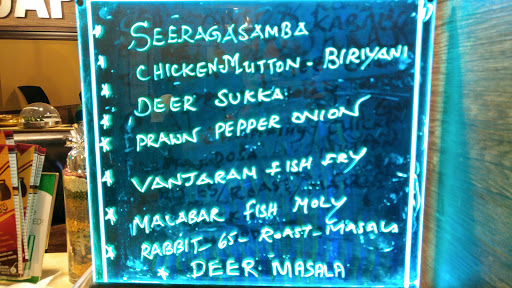 AP
SEERAGASAMBA
CHICKEN-MUTTON - BIRIYANI
DEER SUKKA
PRAWN PEPPER ONION
VANJARAM FISH FRY
MALABAR FISH MOLY
RABBIT-65-ROAST-MASALA
DEER MASALA